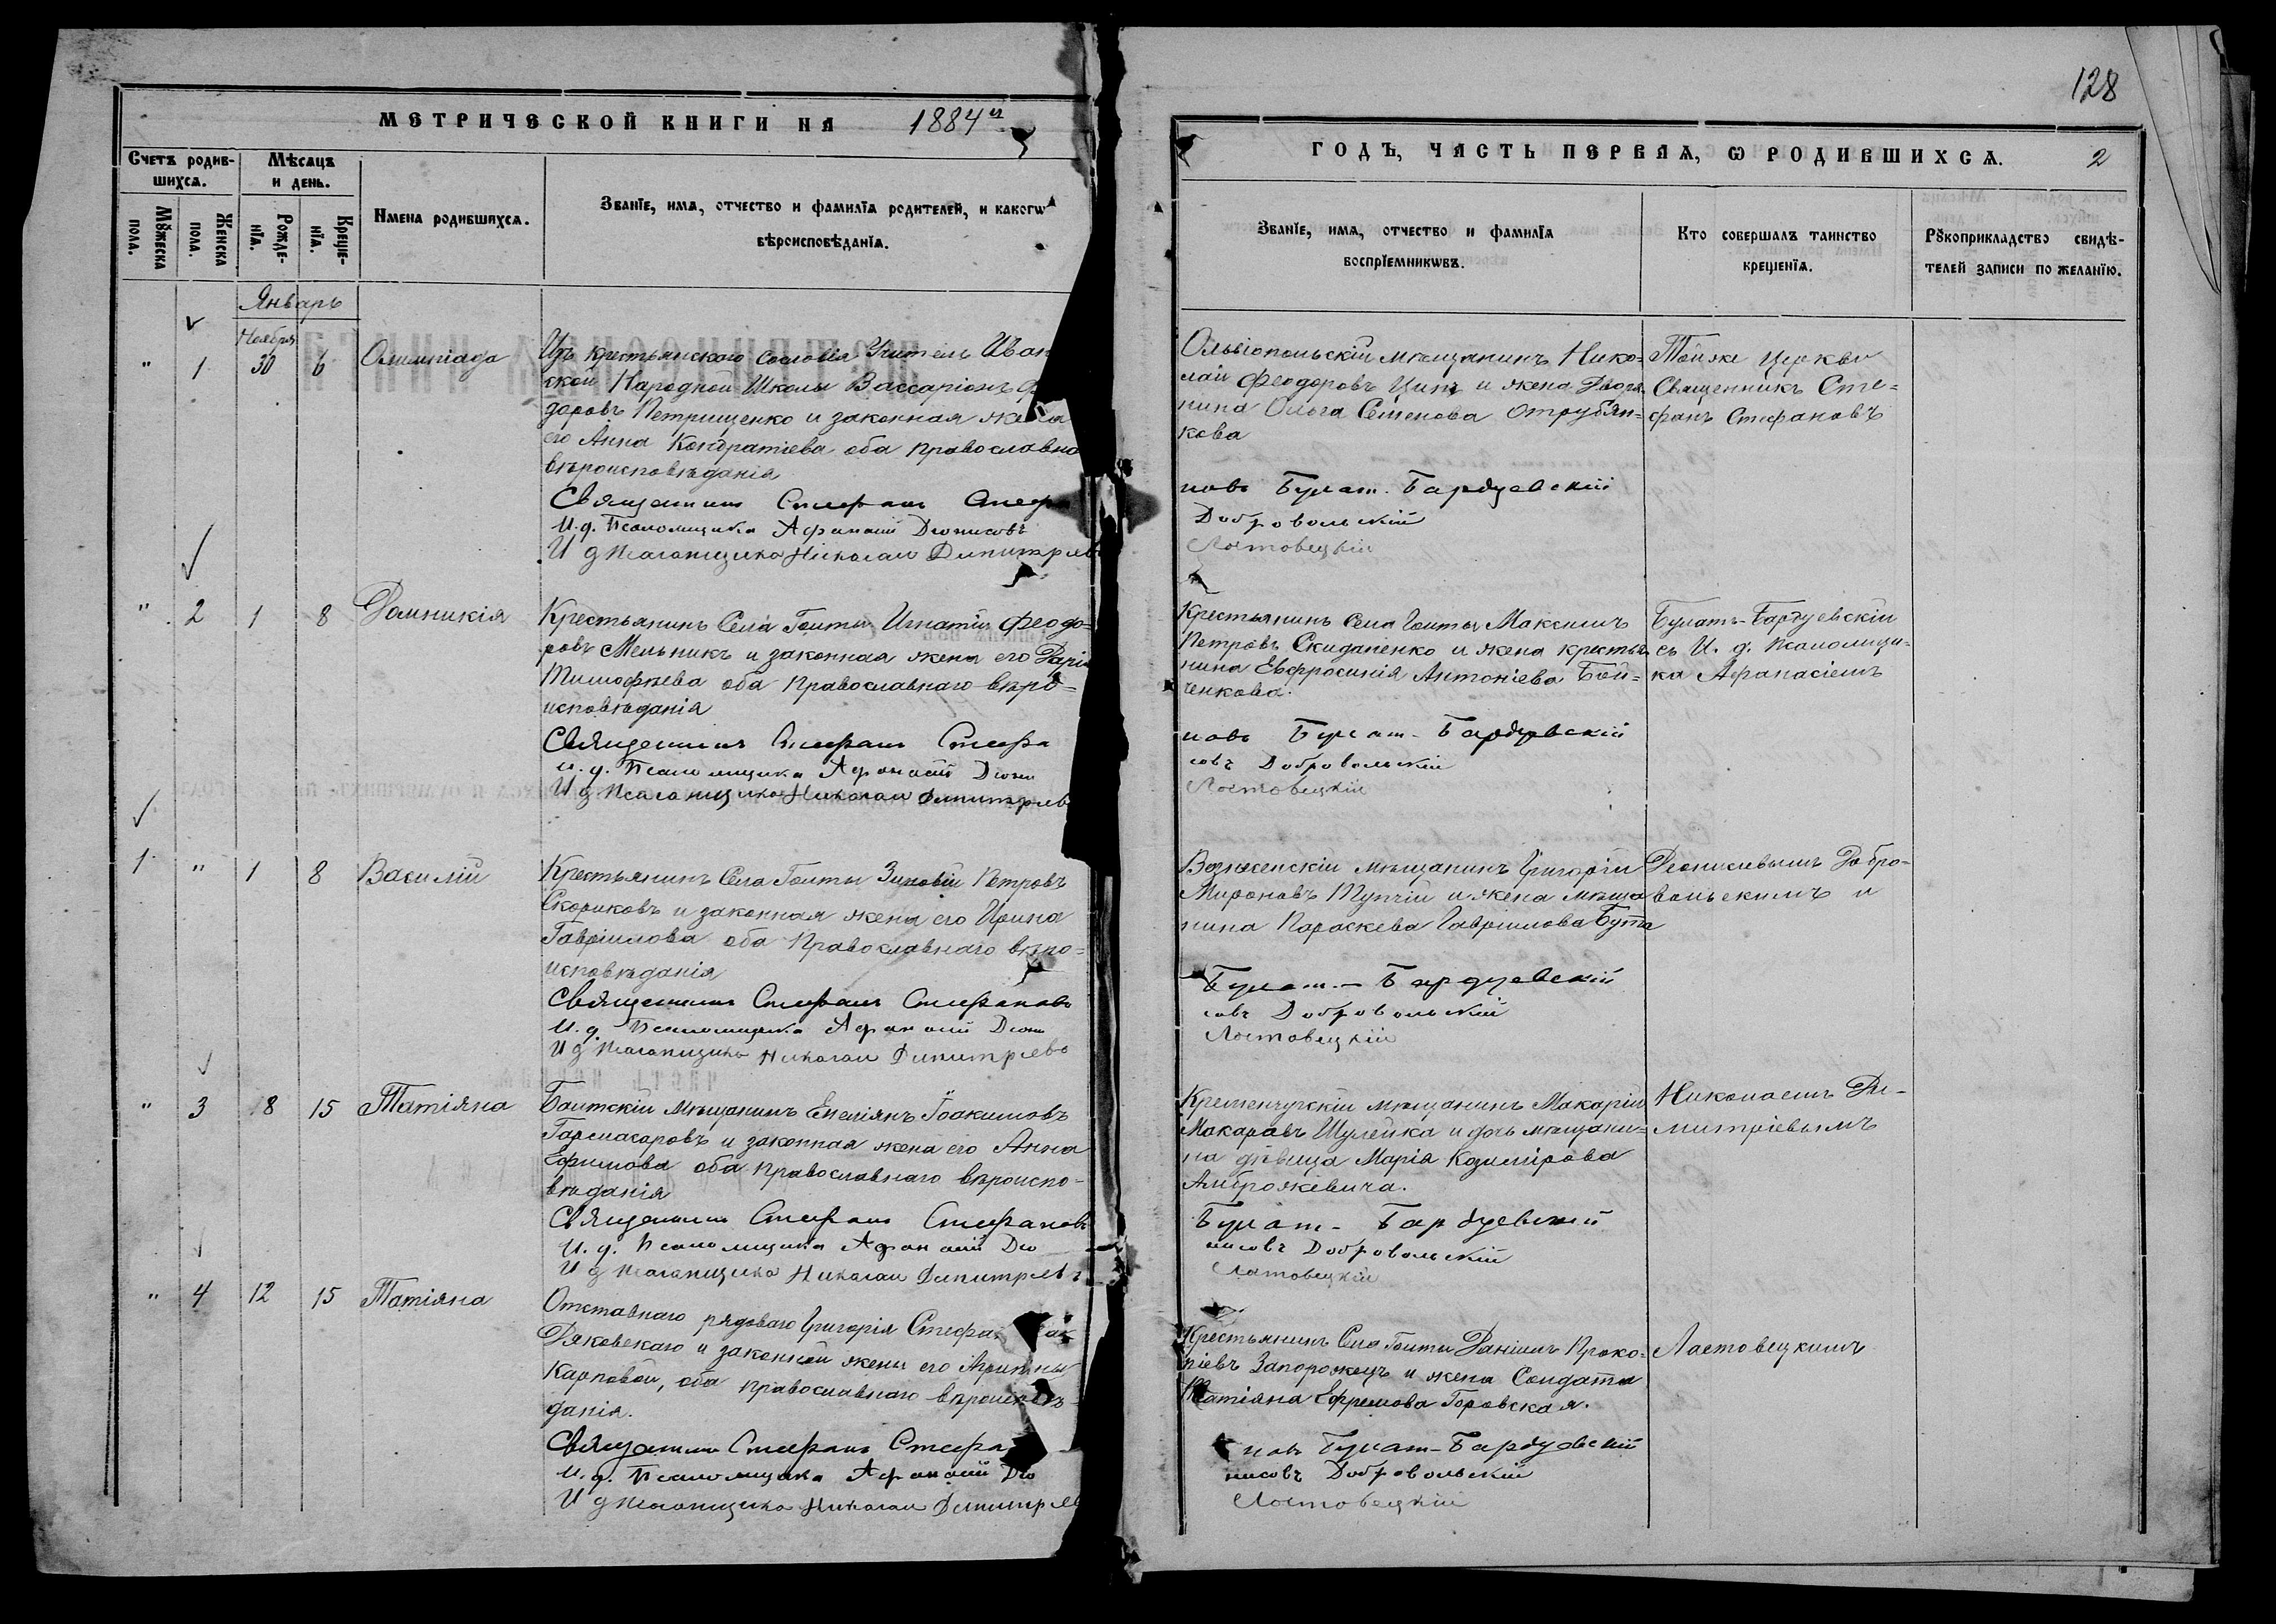 128
МЕТРИЧЕСКОЙ КНИГИ НА 1884й
ГОДЪ, ЧАСТЬ ПЕРВАЯ, Ѡ РОДИВШИХСЯ. 2
Счетъ родив-
шихся.
Мѣсяцъ
и день.
Мꙋжеска
пола.
Женска
пола.
Рожде-
нїя.
Креще-
нїя.
Имена родившихся.
Званїе, имя, отчество и фамилїя родителей, и какогѡ
вѣроисповѣданїя.
Званїе, имя, отчество и фамилїя
воспрїемникѡвъ.
Кто совершалъ таинство
крещенїя.
Рꙋкоприкладство свидѣ-
телей записи по желанїю.
Январь
Ноября
" 1 30 6 Олимпіада
Изъ крестьянскаго сословія Учитель Иван
ской Народной Школы Вассаріонъ Ф
доровъ Петрищенко и законная жена
его Анна Кондратіева оба православна
вѣроисповѣданія
Священникъ Стефанъ Стеф
И. д. Псаломщика Афанасій Діонисовъ
И д Псаломщика Николай Димитріев
Ольвіопольскій мѣщанинъ Нико-
лай Феодоровъ Ципъ и жена Дворя-
нина Ольга Семенова Отрубян-
кова
новъ Булат-Бардуевскій
Добровольскій
Лостовецкій
Тойже Церкви
Священникъ Сте-
фанъ Стефановъ
" 2 1 8 Домникія
Крестьянинъ Села Гольты Игнатій Феодо-
ровъ Мельникъ и законная жена его Дарія
Тимофѣева оба Православнаго вѣро-
исповѣданія
Священникъ Стефанъ Стефа
И. д. Псаломщика Афанасій Діони
И д Псаломщика Николай Димитріев
Крестьянинъ Села Гольты Максимъ
Петровъ Скиданенко и жена крестья-
нина Евфросинія Антоніева Бой-
ченкова.
новъ Булат-Бардуевскій
совъ Добровольскій
Лостовецкій
Булатъ-Бардуевскій
съ И. д. Псаломщи-
ка Афанасіемъ
1 " 1 8 Василій
Крестьянинъ Села Гольты Зиновій Петровъ
Скориковъ и законная жена его Ирина
Гавріилова оба Православнаго вѣро-
исповѣданія
Священникъ Стефанъ Стефановъ
И. д. Псаломщика Афанасій Діони
И д Псаломщика Николай Димитріевъ
Вознесенскій мѣщанинъ Григорій
Мироновъ Тупчій и жена мѣща
нина Параскева Гавріилова Бута
Булат-Бардуевскій
совъ Добровольскій
Лостовецкій
Деонисіевымъ Добро-
вольскимъ и
" 3 18 15 Татіяна
Балтскій мѣщанинъ Емеліянъ Іоакимовъ
и законная жена его Анна
Ефимова оба православнаго вѣроиспо-
вѣданія
Священникъ Стефанъ Стефановъ
И. д. Псаломщика Афанасій Діо
И д Псаломщика Николай Димитріевъ
Кременчугскій мѣщанинъ Макарій
Макаровъ Шулейка и дочь мѣщани-
на дѣвица Марія Козимірова
Амброжевича.
Булат-Бардуевскій
нисовъ Добровольскій
Лостовецкій
Николаемъ Ди-
митріевымъ
" 4 12 15 Татіяна
Отставнаго рядоваго Григорія Стефа
Дяковскаго и законной жены его Агрипины
Карповой, оба православнаго вѣроисповѣ-
данія.
Священникъ Стефанъ Стефа
И. д. Псаломщика Афанасій Діо
И д Псаломщика Николай Димитріе
Крестьянинъ Села Гольты Даніилъ Проко-
піевъ Запорожецъ и жена Солдата
Татіяна Ефремова Горовская.
новъ Булат-Бардуевскій
нисовъ Добровольскій
Лостовецкій
Лостовецкимъ